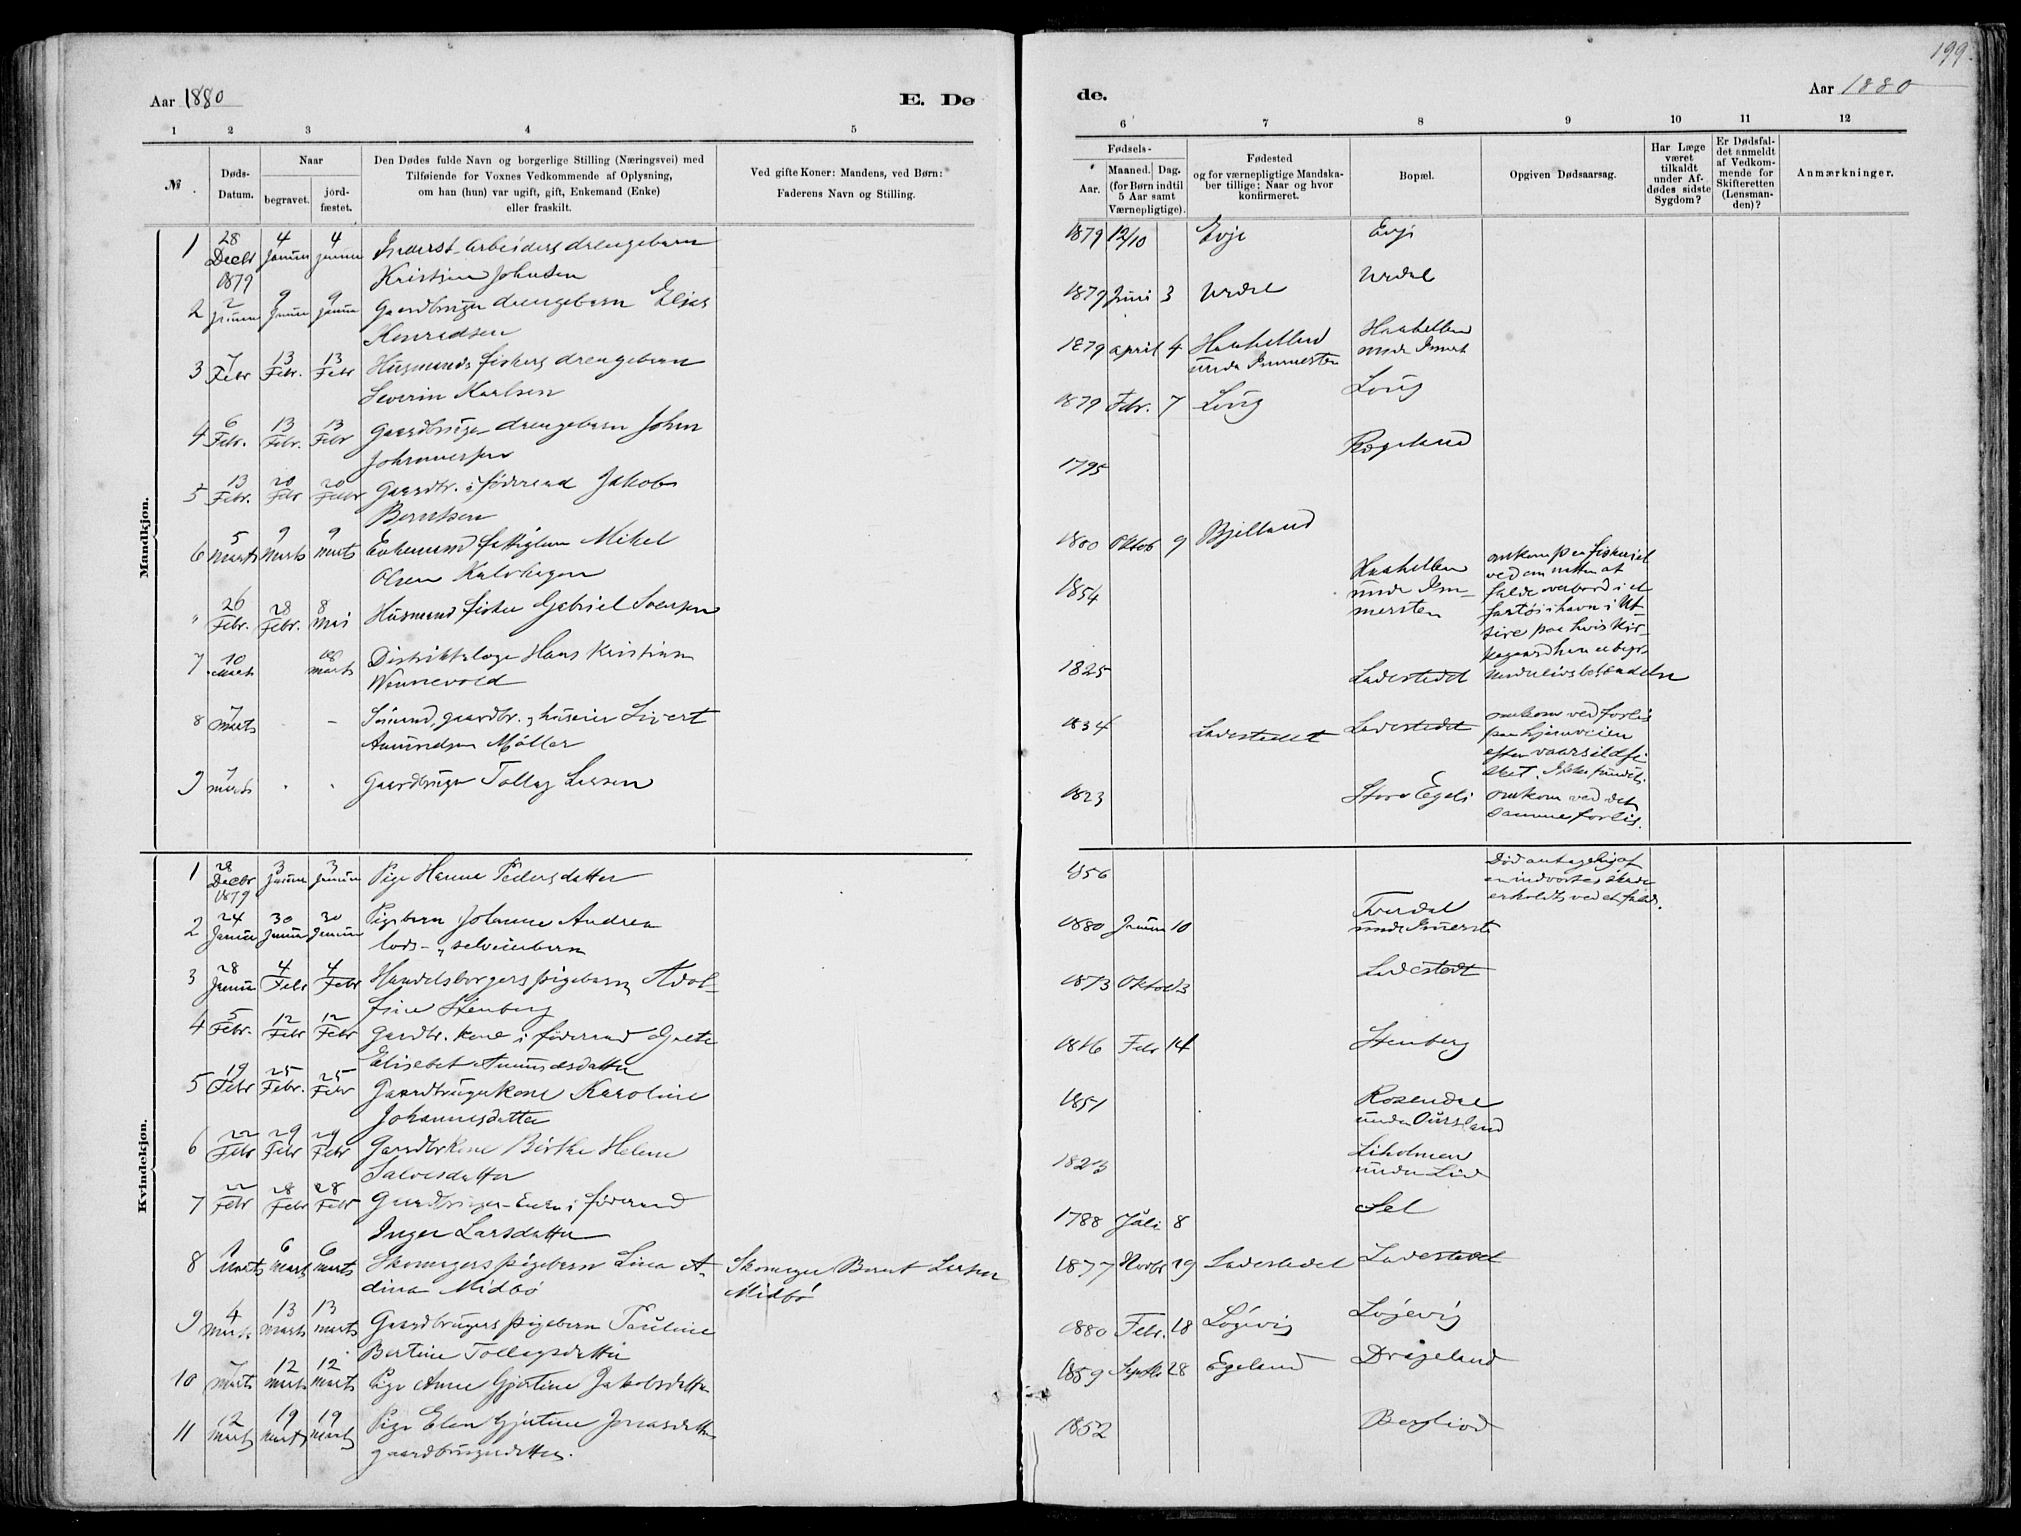 199.
Aar 1880
E. Dø
de.
Aar 1880
1 2 3 4 5
6 7 8 9 10 11 12
№
Døds-
Datum.
Naar
begravet.
jord-
fæstet.
Den Dødes fulde Navn og borgerlige Stilling (Næringsvei) med
Tilføiende for Voxnes Vedkommende af Oplysning,
om han (hun) var ugift, gift, Enkemand (Enke)
eller fraskilt.
Ved gifte Koner: Mandens, ved Børn:
Faderens Navn og Stilling.
Fødsels-
Aar.
Maaned. Dag.
(for Børn indtil
5 Aar samt
Værnepligtige).
Fødested
og for værnepligtige Mandska-
ber tillige: Naar og hvor
konfirmeret.
Bopæl.
Opgiven Dødsaarsag.
Har Læge
været
tilkaldt
under Af-
dødes sidste
Sygdom?
Er Dødsfal-
det anmeldt
af Vedkom-
mende for
Skifteretten
(Lensman-
den)?
Anmærkninger.
Mandkjøn.
1 28 Decbr 1879 4 Januar 4 Januar arbeiders drengebarn
Kristian Johnsen
1879 12/10 Evje Evje
2 2 Januar 9 Januar 9 Januar Gaardbruger drengebarn Elias
Konradsen
1879 Juni 3 Urdal Urdal
3 7 Febr 13 Febr. 13 Febr Husmands fiskers drengebarn
Severin Karlsen
1879 april 4
4 6 Febr. 13 Febr. 13 Febr Gaardbruger drengebarn Johan
Johannessen
1879 Febr. 7 Loug Loug
5 13 Febr. 20 Febr 20 Febr Gaardbr. i føderaad Jakob
Berntsen
1795 Rægeland
6 5 Marts 9 Marts 9 Marts Enkemand fattiglem Mikel
Olsen Kalvhagen
1800 Oktob 9 Bjelland
" 26 Febr. 28 Febr. 8 Mai Husmand fisker Gabriel
1854
omkom paa fiskeriet
ved om natten at
falde overbord i et
fartøi i havn i Ut-
sire paa hvis Kir-
kegaard han er begr.
7 10 Marts 18 Marts Distriktslæge Hans Kristian
Wennevold
1825 Ladestedet
8 7 Marts - Sømand, gaardbr. og huseier Sivert
Amundsen Møller
1834 Ladestedet Ladestedet
omkom ved forlis
paa hjemveien
efter vaarsildfi-
sket. Ikke fundet.
9 7 Marts Gaardbruger Tollag Larsen
1823 Store Egeli omkom ved det
samme forlis.
Kvindekjøn.
1 28 Decbr 1879 3 Januar 3 Januar Pige Hanna Pedersdatter
1856 Død antagelig af
en indvortes skade
erholdt ved et fald.
2 24 Januar 30 Januar 30 Januar Pigebarn Johanne Andrea
lods- og selveierbarn
1880 Januar 10
3 28 Januar 4 Febr 4 Febr Handelsborgers pigebarn Adol-
fine Stenberg
1873 Oktob 3 Ladestedet
4 5 Febr. 12 Febr 12 Febr Gaardbr. kone i føderaad Grete
Elisabet Amundsdatter
1816 Febr 14 Stenberg
5 19 Febr 25 Febr. 25 Febr Gaardbrugerkone Karoline
Johannesdatter
1851 Rosendal
6 22 Febr 29 Febr 29 Febr Gaardbrkone Birthe Helene
Salvesdatter
1823 Liholmen
under Lid
7 22 Febr 28 Febr 28 Febr Gaardbruger-Enke i føderaad
Inger Larsdatter
1788 Juli 8 Sel
8 1 Marts 6 Marts 6 Marts Skomagers pigebarn Lina A-
dina Midbø
Skomager Bernt Larsen
Midbø
1877 Novbr 19 Ladestedet Ladestedet
9 4 Marts 13 Marts 13 Marts Gaardbrugers pigebarn Pauline
Bertine Tollagsdatter
1880 Febr. 18 Løgevig Løgevig
10 7 Marts 12 Marts 12 Marts Pige Anne Gjertine Jakobsdatter
1859 Septbr 28 Egeland Drageland
11 12 Marts 19 Marts 19 Marts Pige Elen Gjertine Jonasdatter
gaardbrugerdatter.
1852